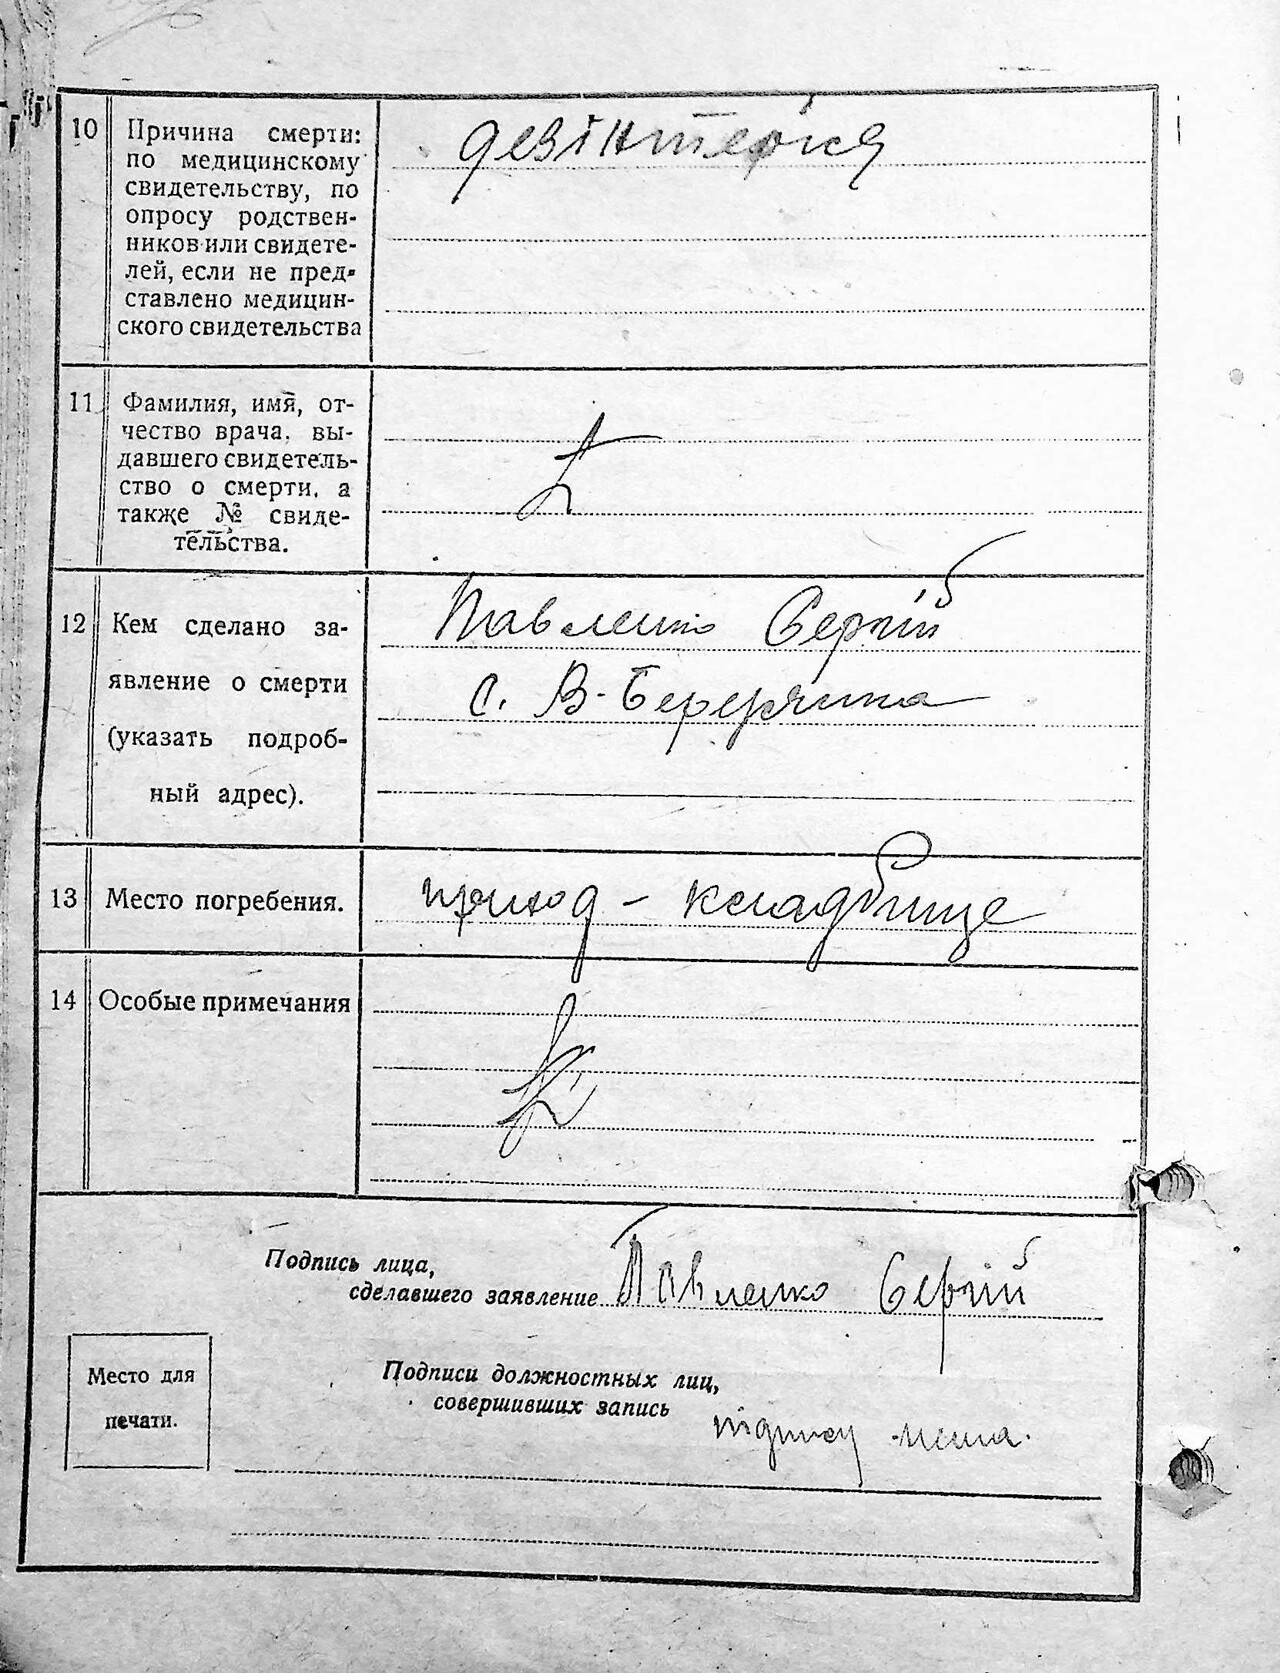 10 Причина смерти:
по медицинскому
свидетельству, по
опросу родствен-
ников или свидете-
лей, если не пред-
ставлено медицин-
ского свидетельства
дезінтерія
11 Фамилия, имя, от-
чество врача, вы-
давшего свидетель-
ство о смерти, а
также № свиде-
тельства.
12 Кем сделано за-
явление о смерти
(указать подроб-
ный адрес).
Павленко Сергій
с. В-Бережанка
13 Место погребения.
приход - кладбище
14 Особые примечания
Подпись лица,
сделавшего заявление Павленко Сергій
Место для
печати.
Подписи должностных лиц,
совершивших запись
підпису нема.